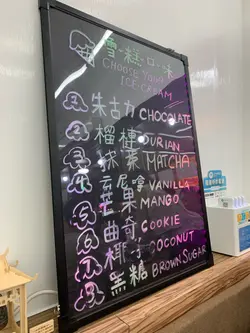 雪糕口味
CHOOSE YOUR
ICE-CREAM
1. 朱古力 CHOCOLATE
2. 榴槤 DURIAN
3. 抹茶 MATCHA
4. 云尼拿 VANILLA
5. 芒果 MANGO
6. 曲奇 COOKIE
7. 椰子 COCONUT
8. 黑糖 BROWN SUGAR